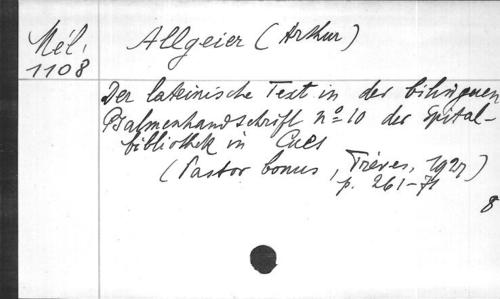 Mél.
1108
Allgeier (Arthur)
Der lateinische Text in der bilinguen
Psalmenhandschrift nº 10 der Spital-
bibliothek in Cues
(Pastor bonus, Trèves, 1927)
p. 261-71
8